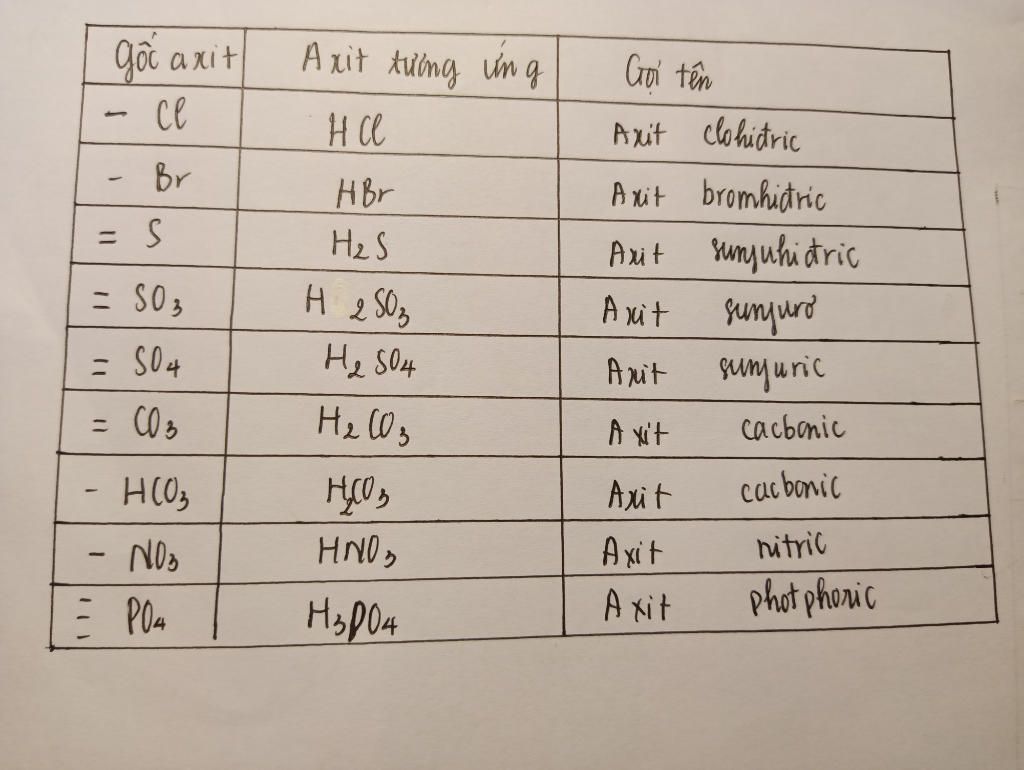 Gốc axit Axit tương ứng Gọi tên
- Cl HCl Axit clohiđric
- Br HBr Axit bromhiđric
= S H₂S Axit sunfuhiđric
= SO₃ H₂SO₃ Axit sunfurơ
= SO₄ H₂SO₄ Axit sunfuric
= CO₃ H₂CO₃ Axit cacbonic
- HCO₃ H₂CO₃ Axit cacbonic
- NO₃ HNO₃ Axit nitric
≡ PO₄ H₃PO₄ Axit photphoric